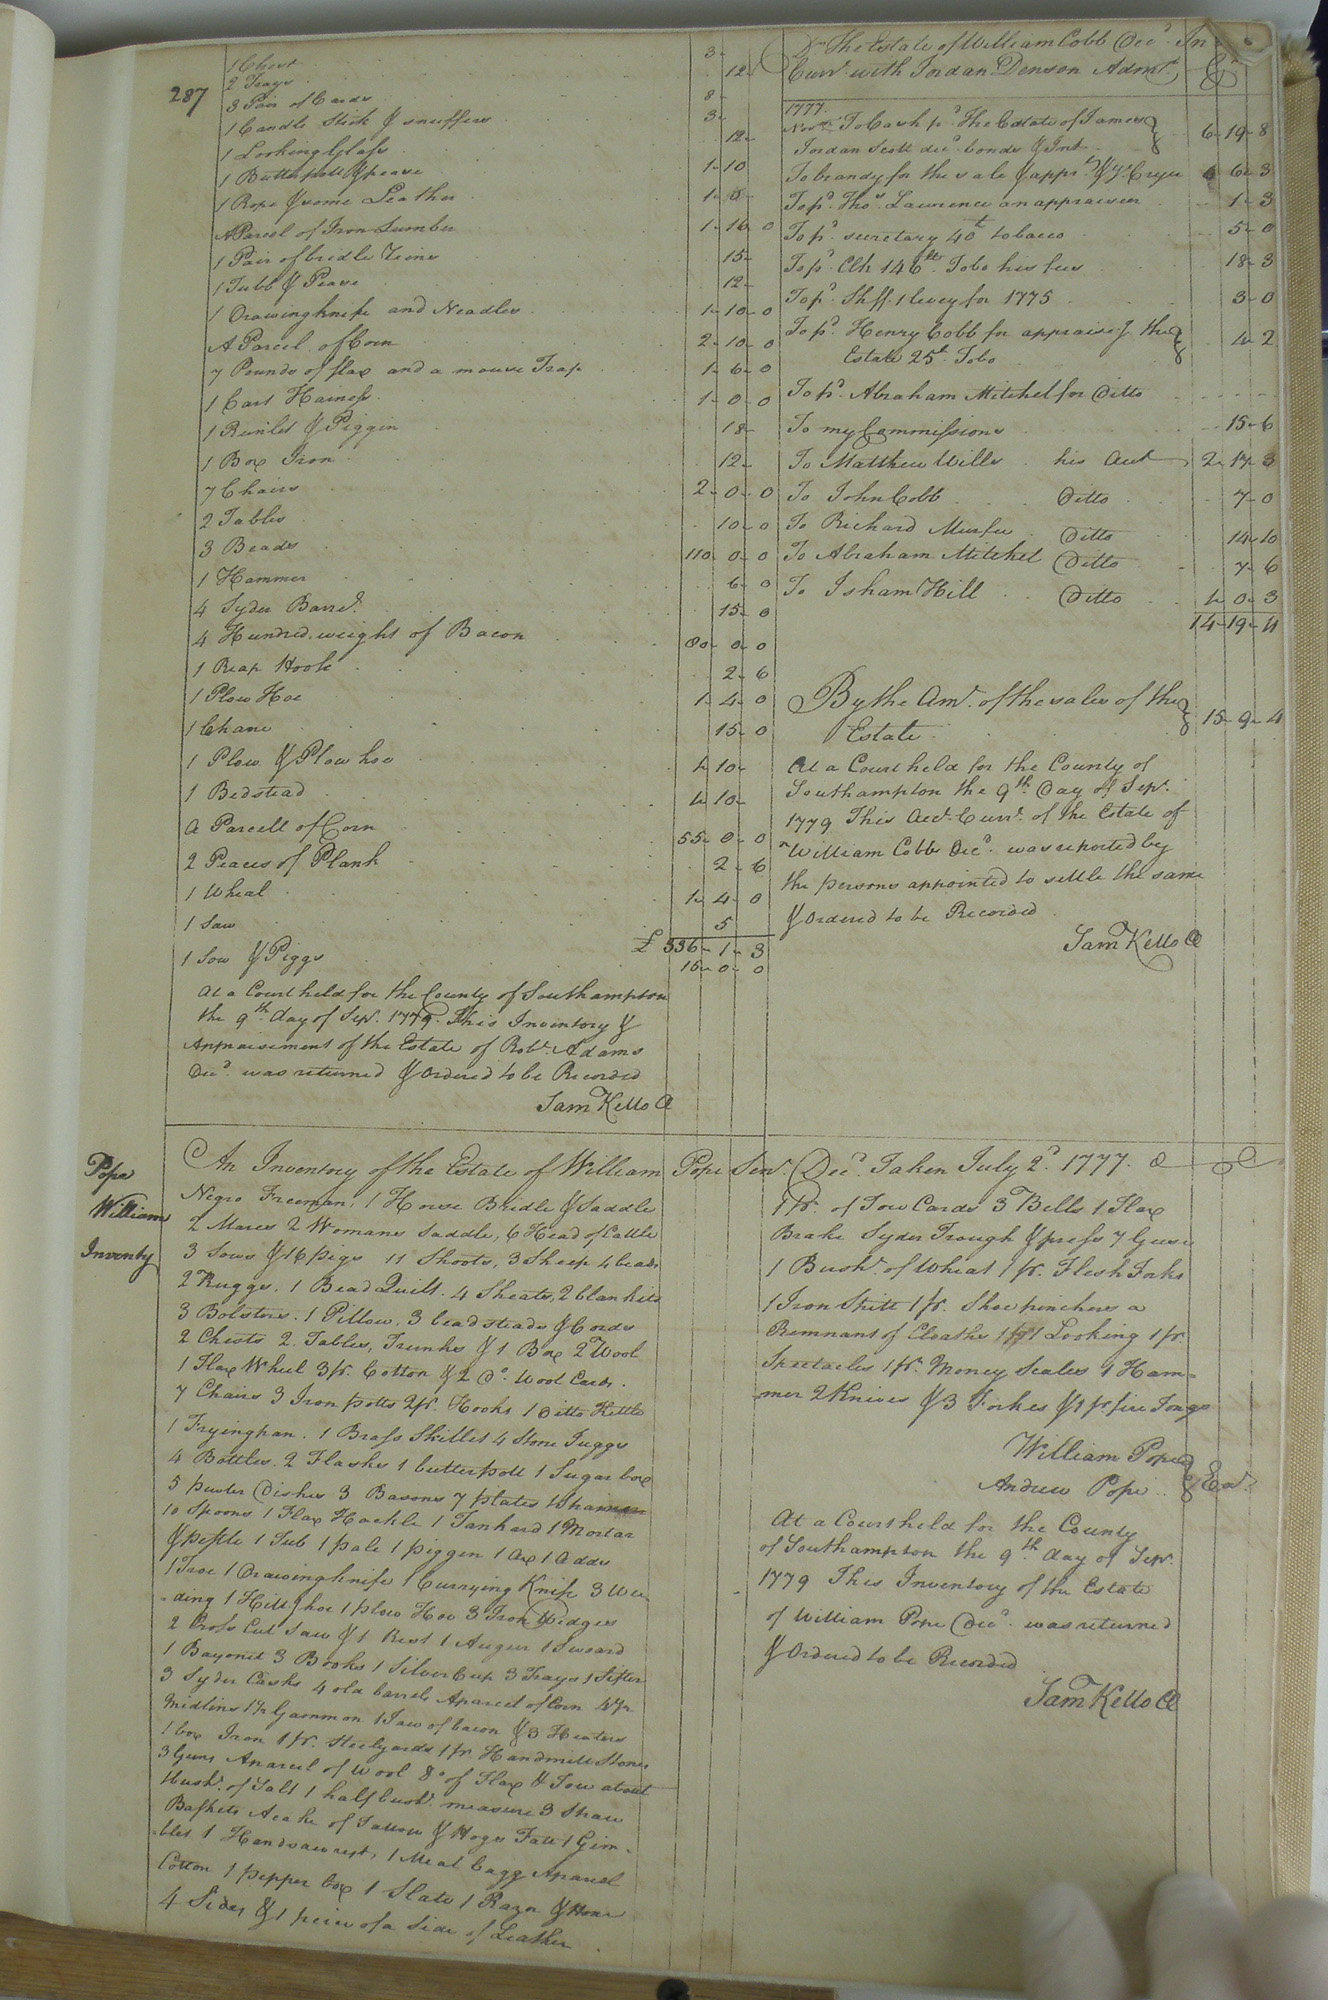 287
1 Chest 3-
2 Trays 12
3 Pair of Cards 8-
1 Candle Stick & snuffers 3-
1 Looking Glass 12-
1 Butterpott & pease 1-10
1 Rope & some Leather 1-0-
A Parcel of Iron Lumber 1-16-0
1 Pair of bridle Reins 15-
1 Tubb & Pease 12-
1 Drawing knife and Neadles 1-10-0
A Parcel of Corn 2-10-0
7 Pounds of flax and a mouse Trap 1-6-0
1 Cart Hainess 1-0-0
1 Runlet & Piggin 18-
1 Box Iron 12-
7 Chairs 2-0-0
2 Tables 10-0
3 Beads 110-0-0
1 Hammer 6-0
4 Syder Barrs. 15-0
4 Hundred weight of Bacon 80-0-0
1 Reap Hook 2-6
1 Plow Hoe 1-4-0
1 Chane 15-0
1 Plow & Plow hoe 4-10-
1 Bedstead 4-10-
A Parcell of Corn 55-0-0
2 Peaces of Plank 2-6
1 Wheal 1-4-0
1 Saw 5
£ 536-1-3
1 Sow & Piggs 15-0-0
At a Court held for the County of Southampton
the 9th day of Sepr. 1779. This Inventory &
Appraisement of the Estate of Robt. Adams
Decd. was returned & Ordered to be Recorded
Sam Kello Cl
Dr The Estate of William Cobb Decd. In
Curr. with Jordan Denson Admr. Cr
1777
Novr. To Cash pd. The Estate of James
Jordan Scott decd. bonds & Int. 6-19-8
To brandy for the sale & apprs. & Cryer 6-3
To pd. Thos. Lawrence an appraiser 1-3
To pd. secretary 40 lt tobacco 5-0
To pd. Clk 146 lt. Tobo his fees 18-3
To pd. Shff. 1 levey for 1775 3-0
To pd. Henry Cobb for appraiseg. the
Estate 25 lt. Tobo 4-2
To pd. Abraham Mitchel for Ditto
To my Commissions 15-6
To Matthew Wills his Act 2-17-3
To John Cobb Ditto 7-0
To Richard Murfee Ditto 14-10
To Abraham Mitchel Ditto 7-6
To Isham Hill Ditto 4-0-3
14-19-11
By the Amt. of the sales of the
Estate 15-9-4
At a Court held for the County of
Southampton the 9th Day of Sepr.
1779 This Act. Currt. of the Estate of
William Cobb Decd. was reported by
the persons appointed to settle the same
& Ordered to be Recorded
Sam Kello Cl
Pope
William
Inventy
An Inventory of the Estate of William Pope Senr. Decd. Taken July 2d. 1777.
Negro Freeman, 1 Horse Bridle & Saddle
2 Mares 2 Womans Saddle, 6 Head of Cattle
3 Sows & 16 pigs 11 Shoots, 3 Sheep 4 beads
2 Ruggs. 1 Bead Quilt. 4 Sheates, 2 blankits
3 Bolsters. 1 Pillow. 3 beadsteads & Cords
2 Chests 2 Tables, Trunks & 1 Box 2 Wool
1 Flax Wheel 3 pr. Cotton & 2 Do. Wool Cards.
7 Chairs 3 Iron potts 2 pr. Hooks 1 Ditto Kettle
1 Fryingpan. 1 Brass Skillet 4 Stone Juggs
4 Bottles. 2 Flasks 1 butterpott 1 Sugar box
5 pewter Dishes 3 Basons 7 plates
10 Spoons 1 Flax Hackle 1 Tankard 1 Mortar
& pestle 1 Tub 1 pale 1 piggen 1 Ax 1 Adds
1 Froe 1 Drawing knife 1 Currying Knife 3 Wee
-ding 1 Hill, hoe 1 plow Hoe 3 Iron Widges
2 Cross Cut Saw & 1 Rest 1 Auger 1 Sword
1 Bayonet 3 Books 1 Silver Cup 3 Trays 1 Sifter
3 Syder Casks 4 old barrels A parcel of Corn
Midlins 1 Gammon 1 Jaw of bacon & 3 Heaters
1 box Iron 1 pr. Steelyards 1 pr. Handmill Stones
3 Guns A parcel of Wool 8o of Flax & Tow about
1 bush. of Salt 1 half bush. measure 3 Straw
Baskets A cake of Tallow & Hogs Fatt 1 Gim-
blet 1 Handsaw rest, 1 Meal bagg A parcel
Cotton 1 pepper box 1 Slate 1 Razor & Hone
4 Sides & 1 peice of a Side of Leather
1 pr. of Tow Cards 3 Bells 1 Flax
Brake Syder Trough & press 7 Geese
1 Bush. of Wheat 1 pr. Flesh Forks
1 Iron Spitt 1 pr. Shoe pinchers a
Remnant of Cloaths 1 Looking 1 pr.
Spectacles 1 pr. Money Scales 1 Ham-
-mer 2 Knives & 3 Forkes & 1 pr fire Tongs
William Pope
Andrew Pope Exr.
At a Court held for the County
of Southampton the 9th. day of Sepr.
1779 This Inventory of the Estate
of William Pope Decd. was returned
& Ordered to be Recorded
Sam Kello Cl